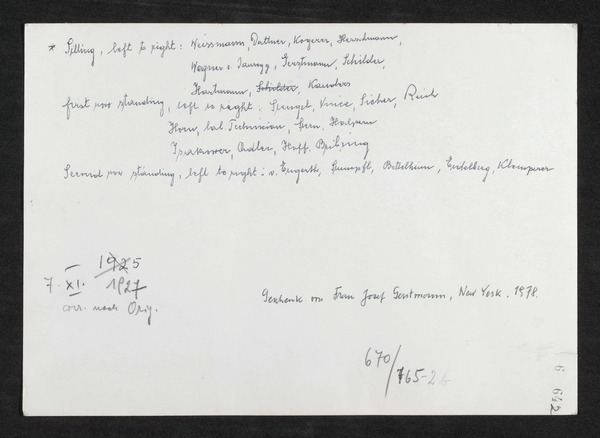 * Sitting, left to right: Weissmann, Dattner, Kogerer, Herschmann,
Wagner v. Jauregg, Gerstmann, Schilder,
Hartmann, Schilder, Kauders
first row standing, left to right: Stengel, Knies, Sicher, Reich
Horn, lab. Technician, Stern, Halpern
Isakower, Adler, Hoff.
Second row standing, left to right: v. Engerth, Stumpfl, Bettelheim, Eidelberg, Klemperer
1925
7. XI. 1927
corr. nach Orig.
Geschenk von Frau Josef Gerstmann, New York. 1978.
670/
765-2
6 642